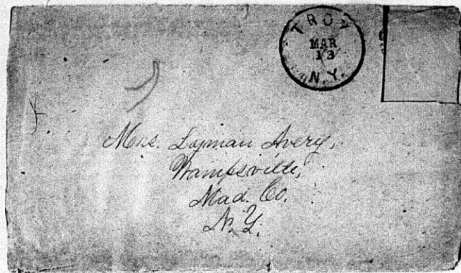 TROY
MAR
13
N.Y.
Mrs. Lyman Avery,
Wampsville,
Mad. Co.
N.Y.